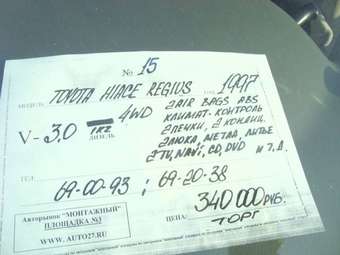 № 15
МОДЕЛЬ TOYOTA HIACE REGIUS ГОД 1997
V- 3,0 1KZ ДИЗЕЛЬ 4WD
2 AIR BAGS ABS
КЛИМАТ-КОНТРОЛЬ
2 ПЕЧКИ, 2 КОНДИЦ.
2 ЛЮКА, МЕТАЛ, ЛИТЬЕ
2 TV, NAVI, CD, DVD и т.д.
ТЕЛ. 69-00-93 ; 69-20-38
Авторынок "МОНТАЖНЫЙ"
ПЛОЩАДКА №3
WWW. AUTO27.RU
ЦЕНА: 340 000 РУБ.
ТОРГ